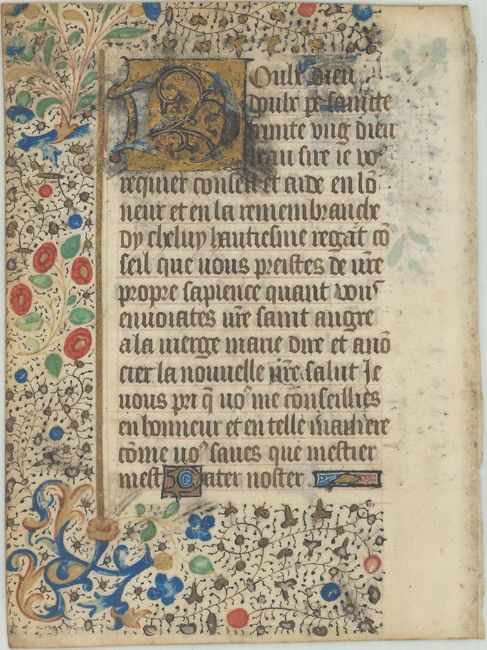 Doulx dieu
doulx pe saincte
trinite vng dieu
beau sire ie vo⁹
requier conseil et aide en lō
neur et en la remembranche
dy cheluy hautiesme regāt cō
seil que uous preistes de vr̄e
propre sapience quant vous
enuoiates vr̄e saint angre
a la vierge marie dire et anō
cier la nouuelle nr̄e salut Je
uous pri q̄ vo⁹ me conseillies
en honneur et en telle maniere
cōme vo⁹ saues que mestier
mest Pater noster